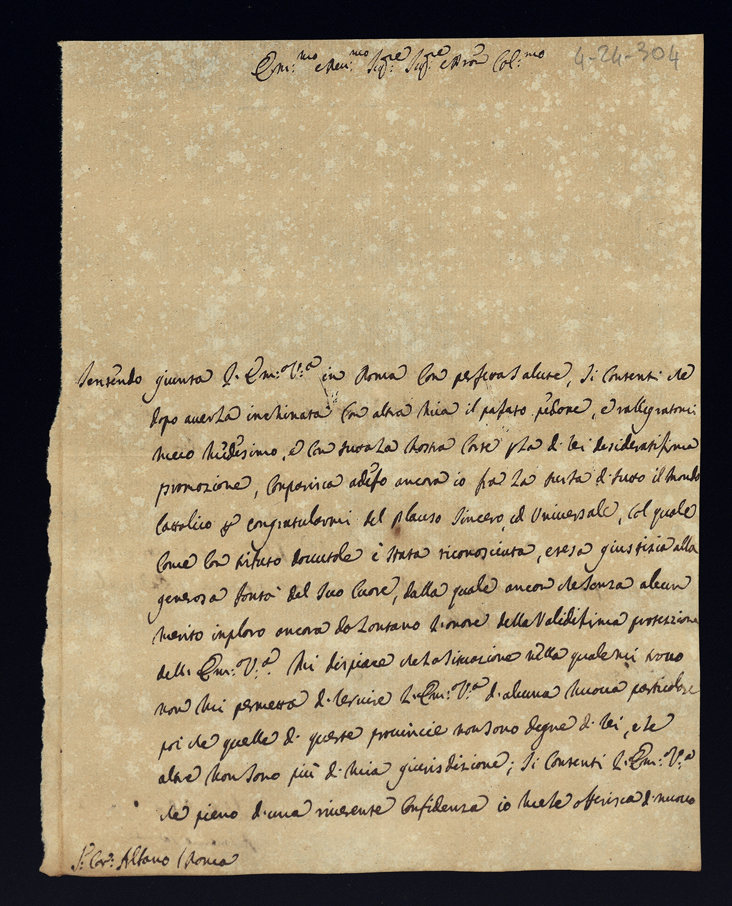 Em:mo e Reu:mo Sig:re Sig:re e Pron Col:mo 4-24-304
Sentendo giunta l'Em:a V:a in Roma con perfetta Salute, Si Contenti che
dopo auerla inchinata con altra mia il passato , e rallegratomi
meco med.esimo, e con tutta la nostra Corte p la di lei desideratissima
promozione, Comparisca adesso ancora io fra la turba di tutto il mondo
Cattolico p congratularmi del plauso Sincero, ed Universale, col quale
Come con tributo douutole è stata riconosciuta, e resa giustizia alla
generosa bontà del Suo Cuore, dalla quale ancor che Senza alcun
merito imploro ancora da lontano l'onore della Validissima protezzione
dell' Em:a V:a. Mi dispiace che la situazione nella quale mi trouo
non mi permetta di seruire l'Em:a V:a di alcuna nuoua particolare
poi che quelle di queste prouincie non sono degne di lei, e le
altre non sono più di mia giurisdizione; Si Contenti l'Em:a V:a
che pieno di una riuerente Confidenza io me le offerisca di nuouo
S.r Car: Albano Roma